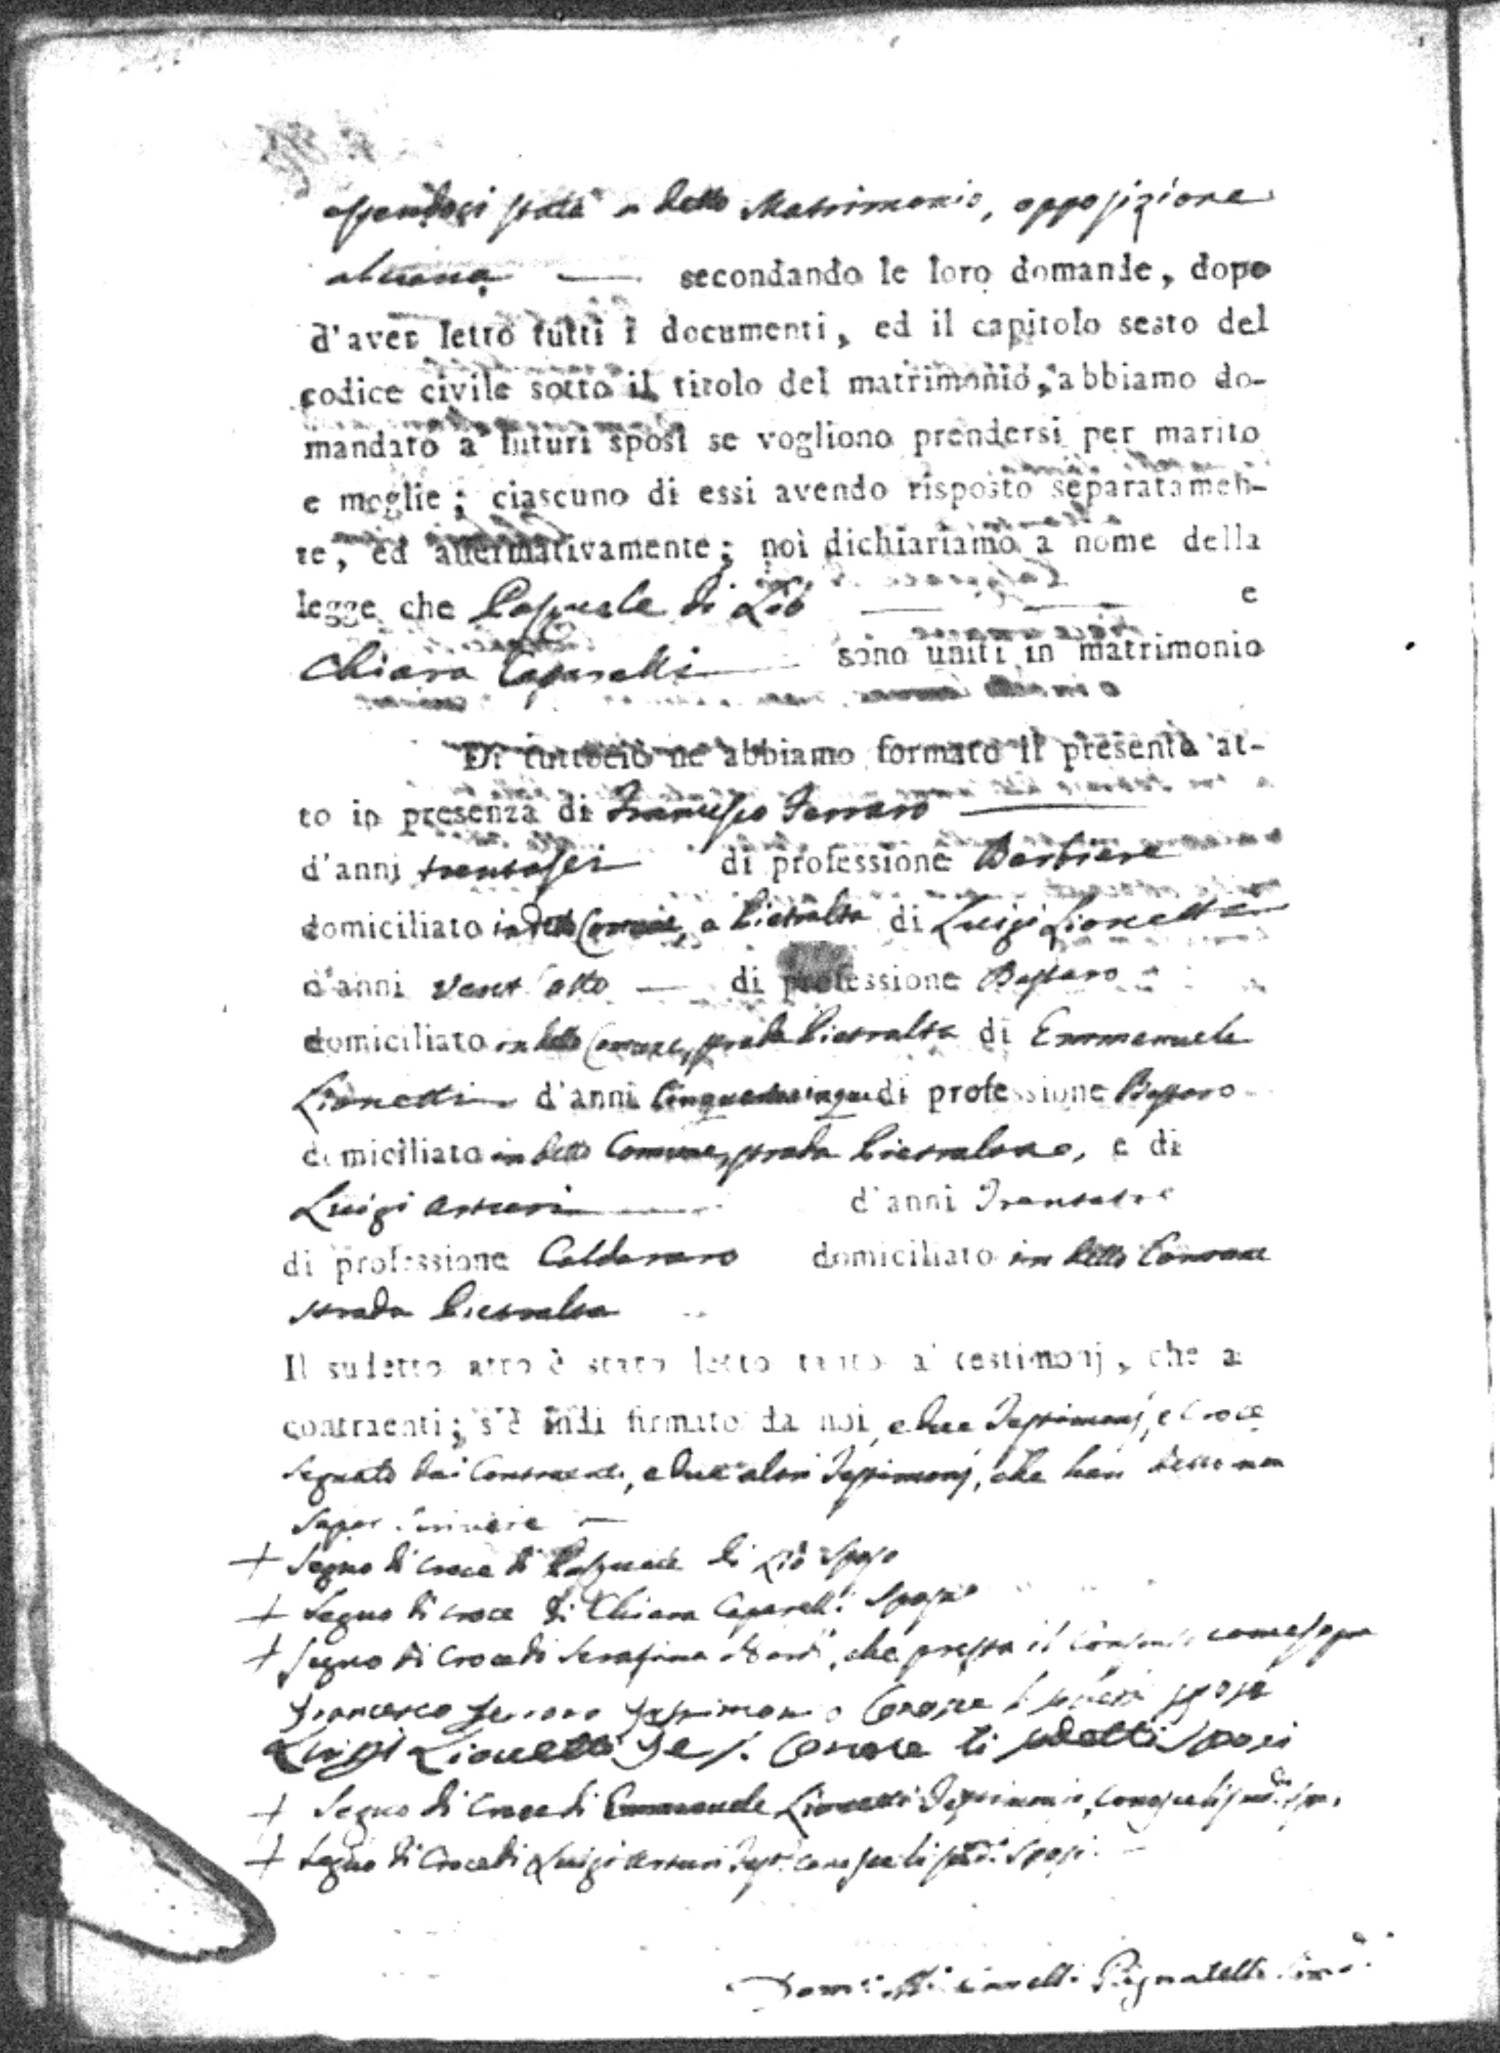 essendosi stata a detto Matrimonio, opposizione
alcuna secondando le loro domande, dopo
d'aver letto tutti i documenti, ed il capitolo sesto del
codice civile sotto il titolo del matrimonio, abbiamo do-
mandato a' futuri sposi se vogliono prendersi per marito
e moglie; ciascuno di essi avendo risposto separatamen-
te, ed affermativamente; noi dichiariamo a nome della
legge che Pasquale di Liò e
Chiara Caparelli sono uniti in matrimonio
Di tuttociò ne abbiamo formato il presente at-
to in presenza di Francesco Ferraro
d'anni trentasei di professione Barbiere
domiciliato in detto Comune, a Pietralta di Luigi Lionetti
d'anni vent'otto di professione Bastaro
domiciliato in detto Comune, strada Pietralta di Emmanuele
Lionetti d'anni cinquantacinque di professione Bastaro
domiciliato in detto Comune, strada Pietralta, e di
Luigi Arturi d'anni Trentatre
di professione Caldararo domiciliato in detto Comune
strada Pietralta
Il sudetto atto è stato letto tanto a' testimonj, che a
contraenti; s'è indi firmato da noi, e due Testimonj, e Croce
segnato dai Contraenti, e due altri Testimonj, che han detto non
saper scrivere
+ Segno di croce di Pasquale di Liò sposo
+ Segno di croce di Chiara Caparelli sposa
+ Segno di Croce di Serafina che presta il Consenso come sopra
Francesco Ferraro Testimonio Conosce i sudetti sposi
Luigi Lionetti Tes. Conosce li sudetti Sposi
+ Segno di Croce di Emmanuele Lionetti Testimonio, conosce li sud.i
+ Segno di Croce di Luigi Arturi Test. conosce li sud.i Sposi
Dom.o Pignatelli